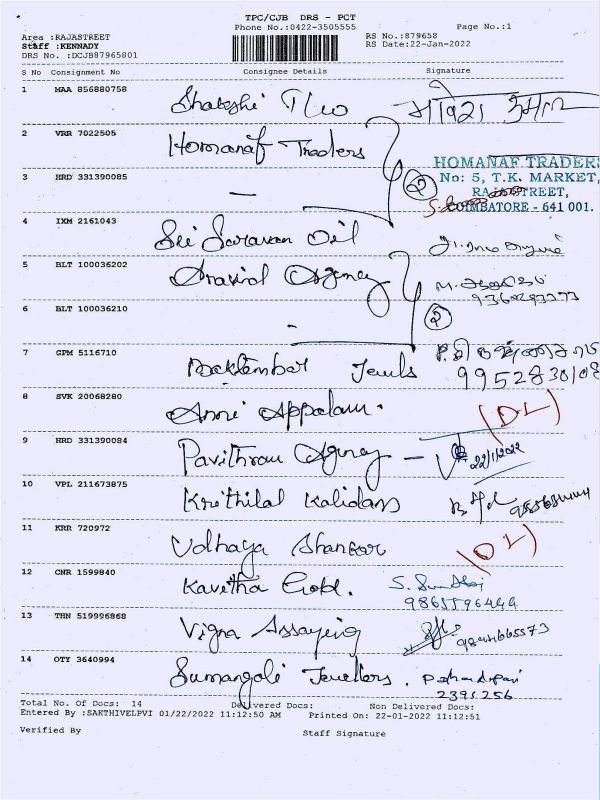 TPC/CJB DRS - PCT
Phone No.:0422-3505555 Page No.:1
Area :RAJASTREET RS No.:879658
Staff :KENNADY RS Date:22-Jan-2022
DRS No. :DCJB87965801
S No Consignment No Consignee Details Signature
1 MAA 856880758
2 VRR 7022505 Homanaf Traders
HOMANAF TRADERS
3 HRD 331390085 — 2 No: 5, T.K. MARKET,
RAJA STREET,
COIMBATORE - 641 001.
4 IXM 2161043 Sri Saravan Oil
5 BLT 100036202 Aravind Agency
6 BLT 100036210 2
7 GPM 5116710 Jewels
8 SVK 20068280 Anni Appalam. (DL)
9 HRD 331390084 Pavithran Agency — 22/1/2022
10 VPL 211673875 Krithilal Kalidass
11 KRR 720972 Udhaya Shankar (DL)
12 CNR 1599840 Kavitha Gold.
13 THN 519996868 Vigna Assaying
14 OTY 3640994 Sumangali Jewellers.
2391256
Total No. Of Docs: 14 Delivered Docs: Non Delivered Docs:
Entered By :SAKTHIVELPVI 01/22/2022 11:12:50 AM Printed On: 22-01-2022 11:12:51
Verified By Staff Signature